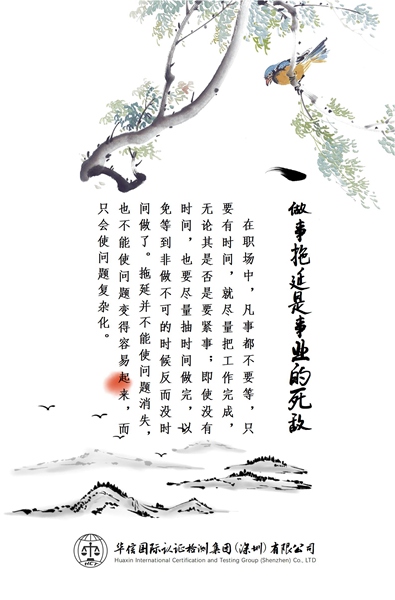 做事拖延是事业的死敌
在职场中，凡事都不要等，只
要有时间，就尽量把工作完成，
无论其是否是要紧事；即使没有
时间，也要尽量抽时间做完，以
免等到非做不可的时候反而没时
间做了。拖延并不能使问题消失，
也不能使问题变得容易起来，而
只会使问题复杂化。
华信国际认证检测集团(深圳)有限公司
Huaxin International Certification and Testing Group (Shenzhen) Co., LTD